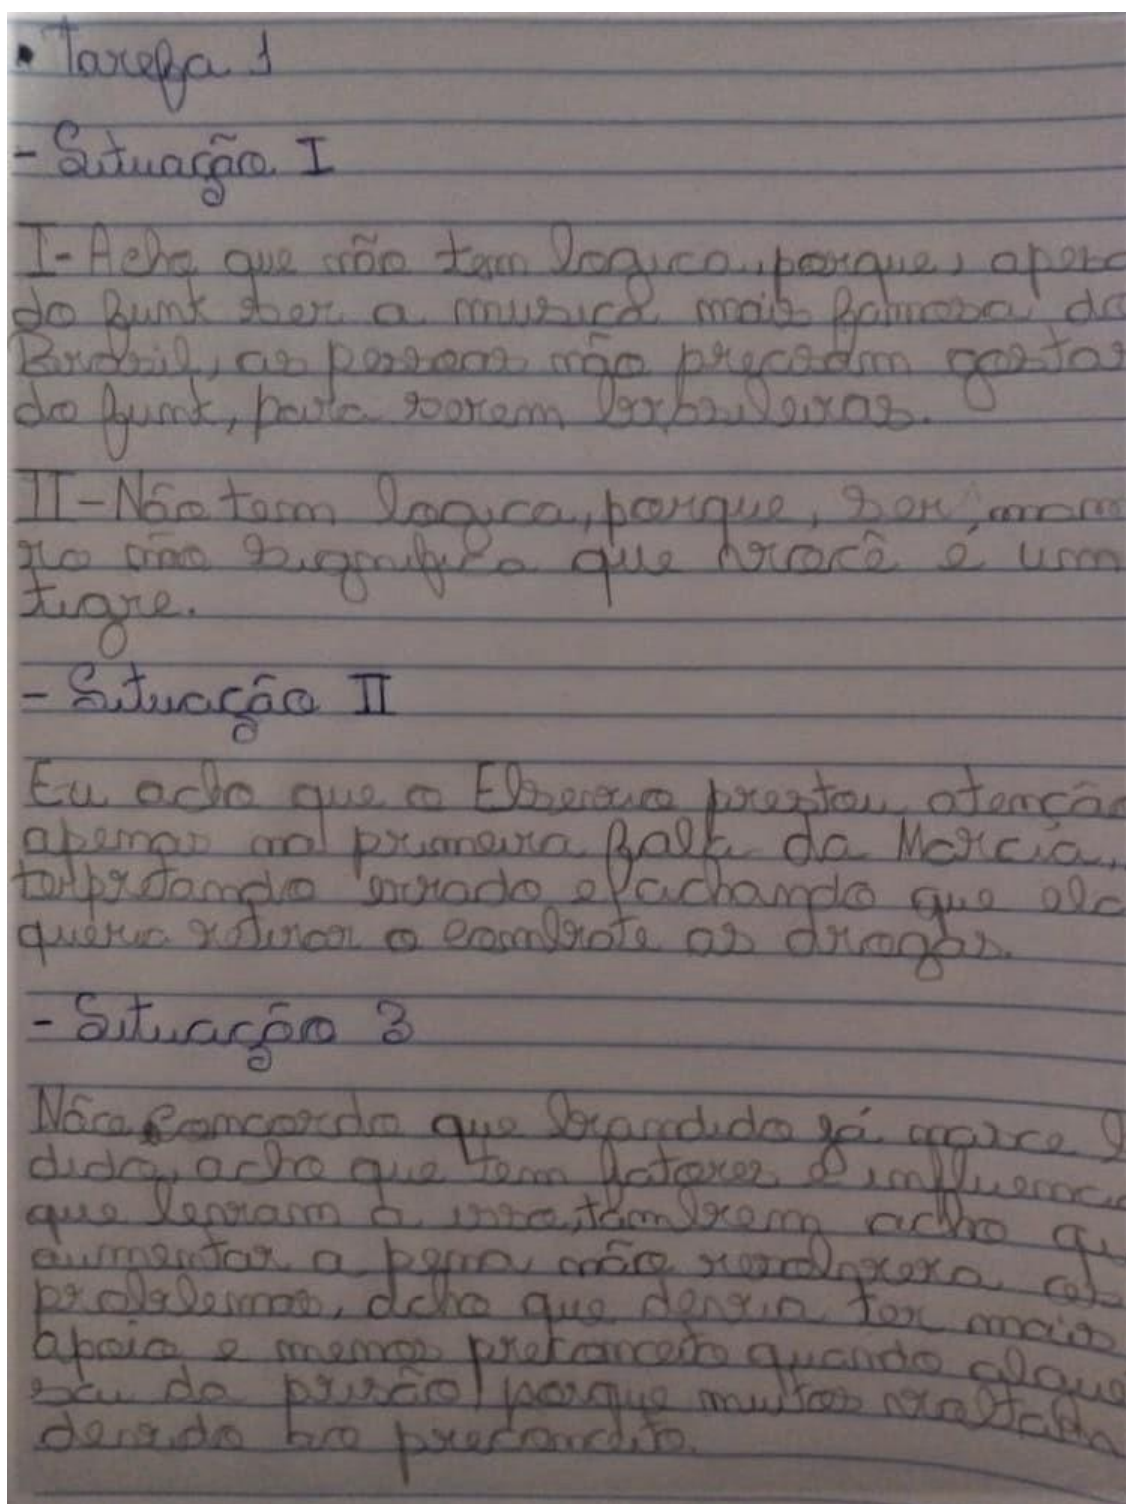 • Tarefa 1
- Situação I
I- Acho que não tem logica, porque, apesa
do funk ser a musica mais famosa do
Brasil, as pessoas não precisam gostar
do funk, para serem brasileiras.
II- Não tem logica, porque, ser mam
não significa que você é um
tigre.
- Situação II
Eu acho que o Elberio prestou atenção
apenas na primeira fala da Marcia,
errado e achando que ela
queria retirar o combate as drogas.
- Situação 3
Não concordo que bandido já nasce b
dido, acho que tem fatores e influencia
que levam a isso, tambem acho qu
aumentar a pena não resolvera os
problemas, acho que devia ter mais
apoio e menos preconceito quando algue
sai da prisão, porque muitos
devido ao preconceito.